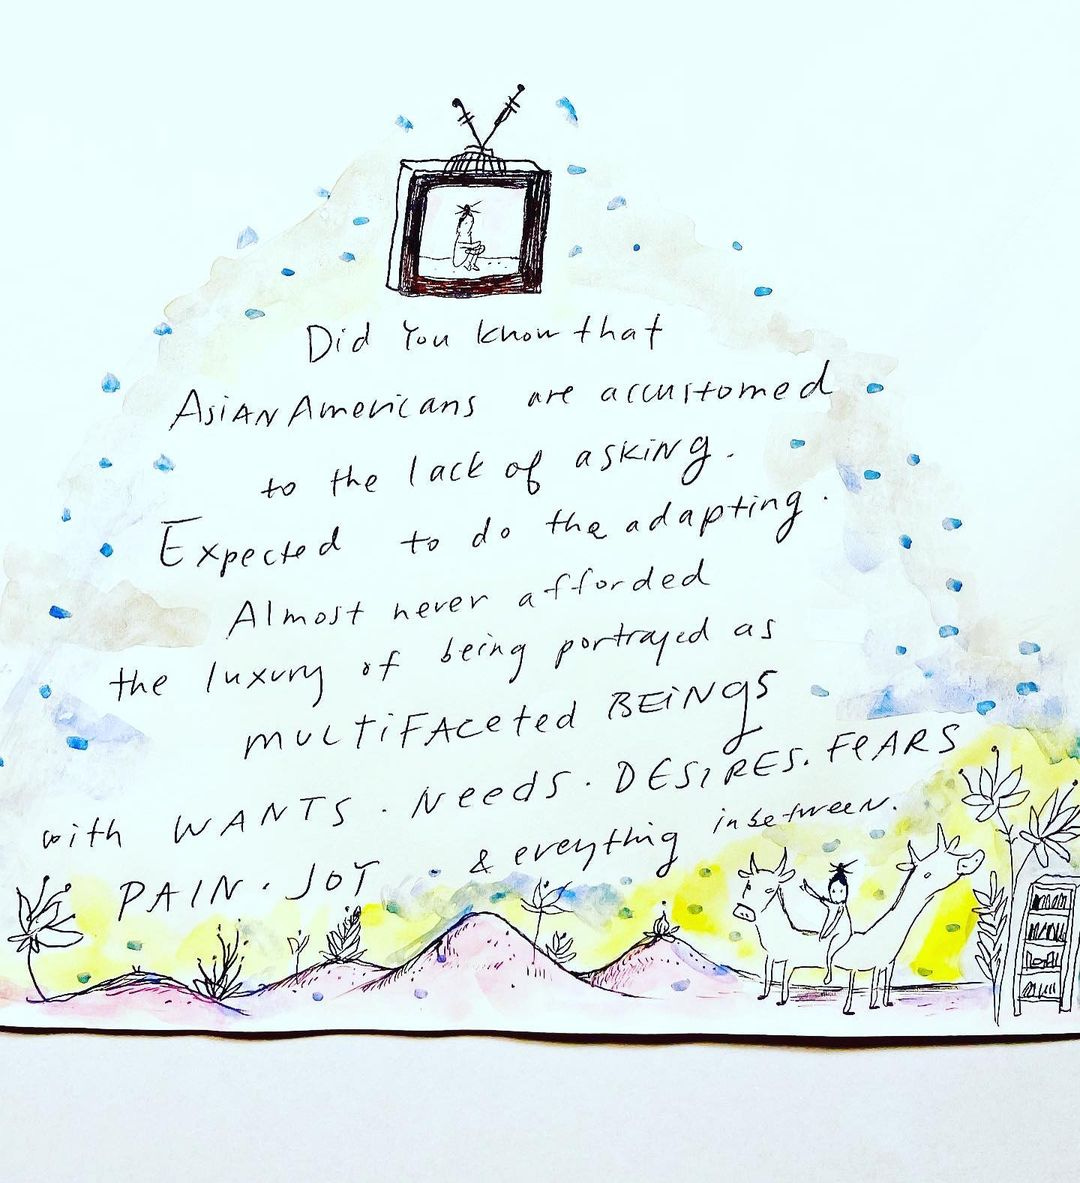 Did You know that
ASiAN Americans are accustomed
to the lack of asKiNg.
Expected to do the adapting.
Almost never afforded
the luxury of being portrayed as
mULTiFAceted BEiNgS
with WANTS. NeedS. DESiRES. FeARS
PAIN. JOY & everything inbetween.